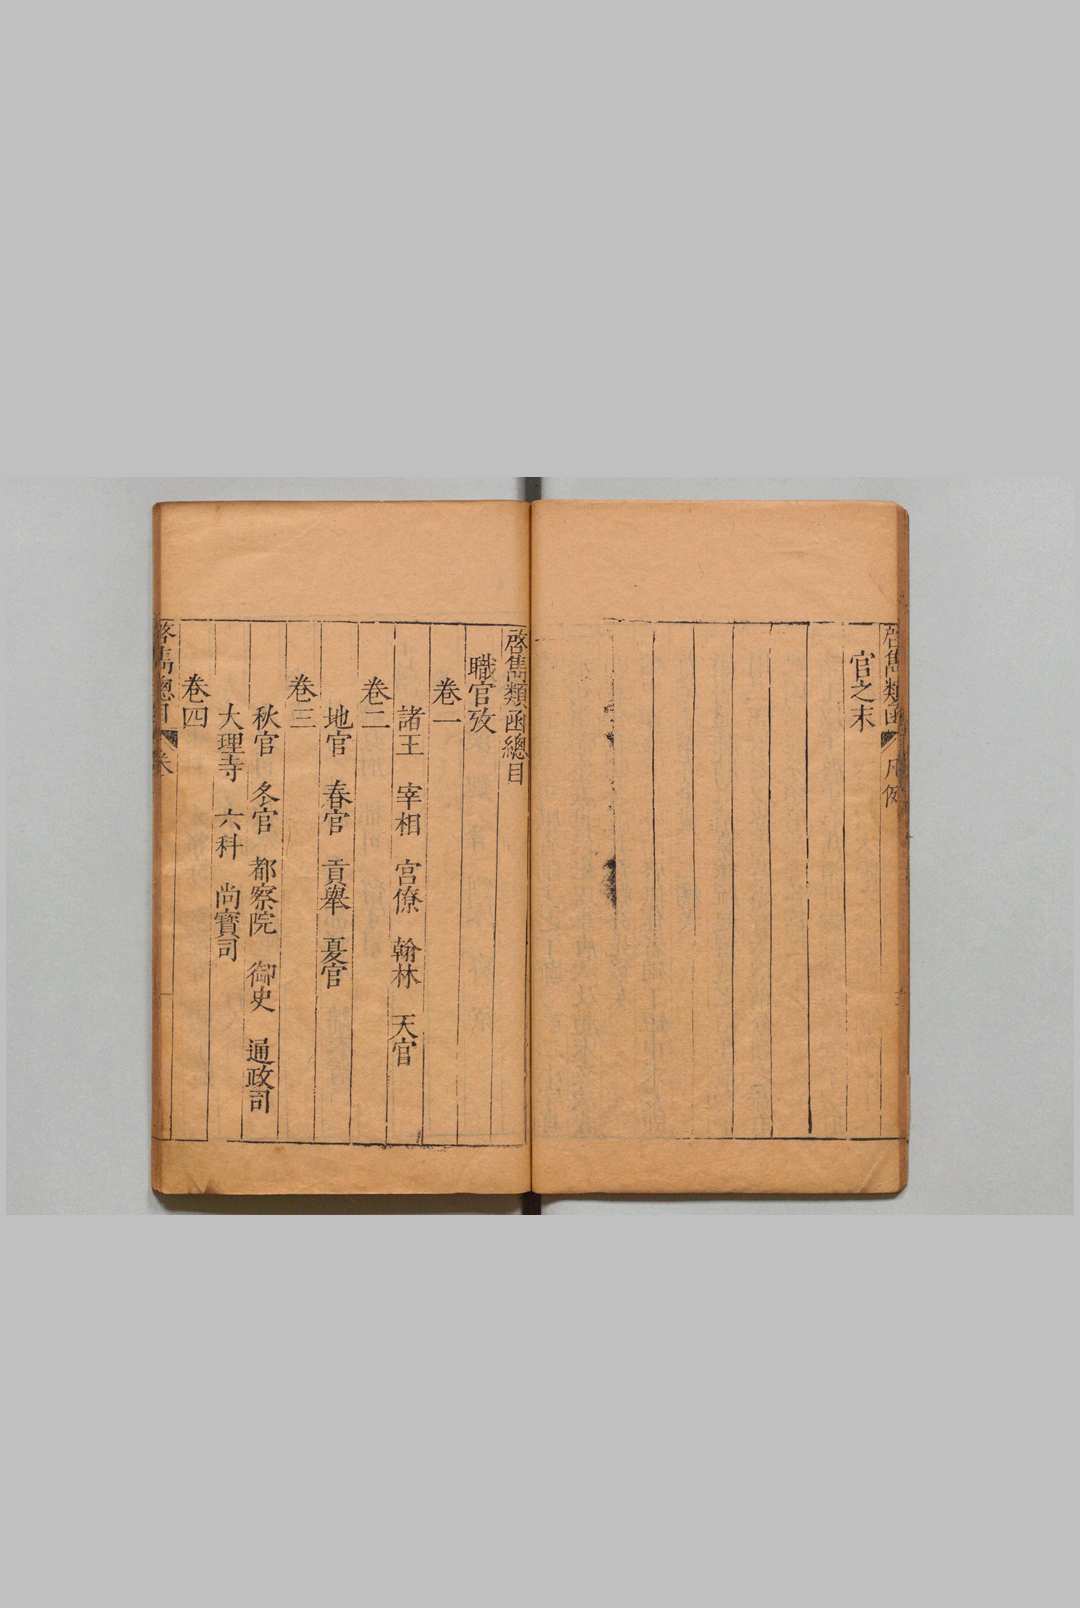 啓雋類函 凡例
官之末
啓雋類函總目
職官攷
卷一
諸王 宰相 宮僚 翰林 天官
卷二
地官 春官 貢舉 夏官
卷三
秋官 冬官 都察院 御史 通政司
大理寺 六科 尚寶司
卷四
啓雋總目 卷